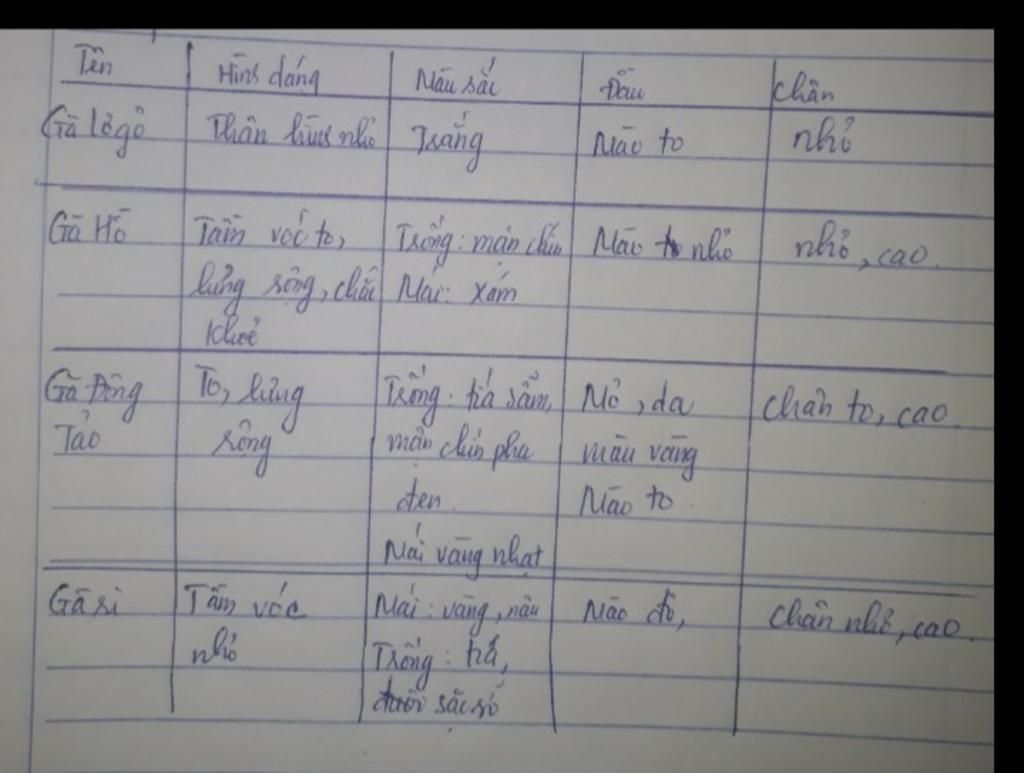 Tên Hình dáng Màu sắc Đầu Chân
Gà lơgô Thân hình nhỏ Trắng Mào to nhỏ
Gà Hồ Tầm vóc to, Trống: mận chín Mào nhỏ nhỏ, cao.
lưng rộng, chắc Mái: xám
khoẻ
Gà Đông To, lưng Trống: tía sẫm, Mỏ, da chân to, cao.
Tảo rộng mận chín pha màu vàng
đen. Mào to.
Mái vàng nhạt
Gà ri Tầm vóc Mái: vàng, nâu Mào đỏ, chân nhỏ, cao.
nhỏ Trống: tía,
sặc sỡ